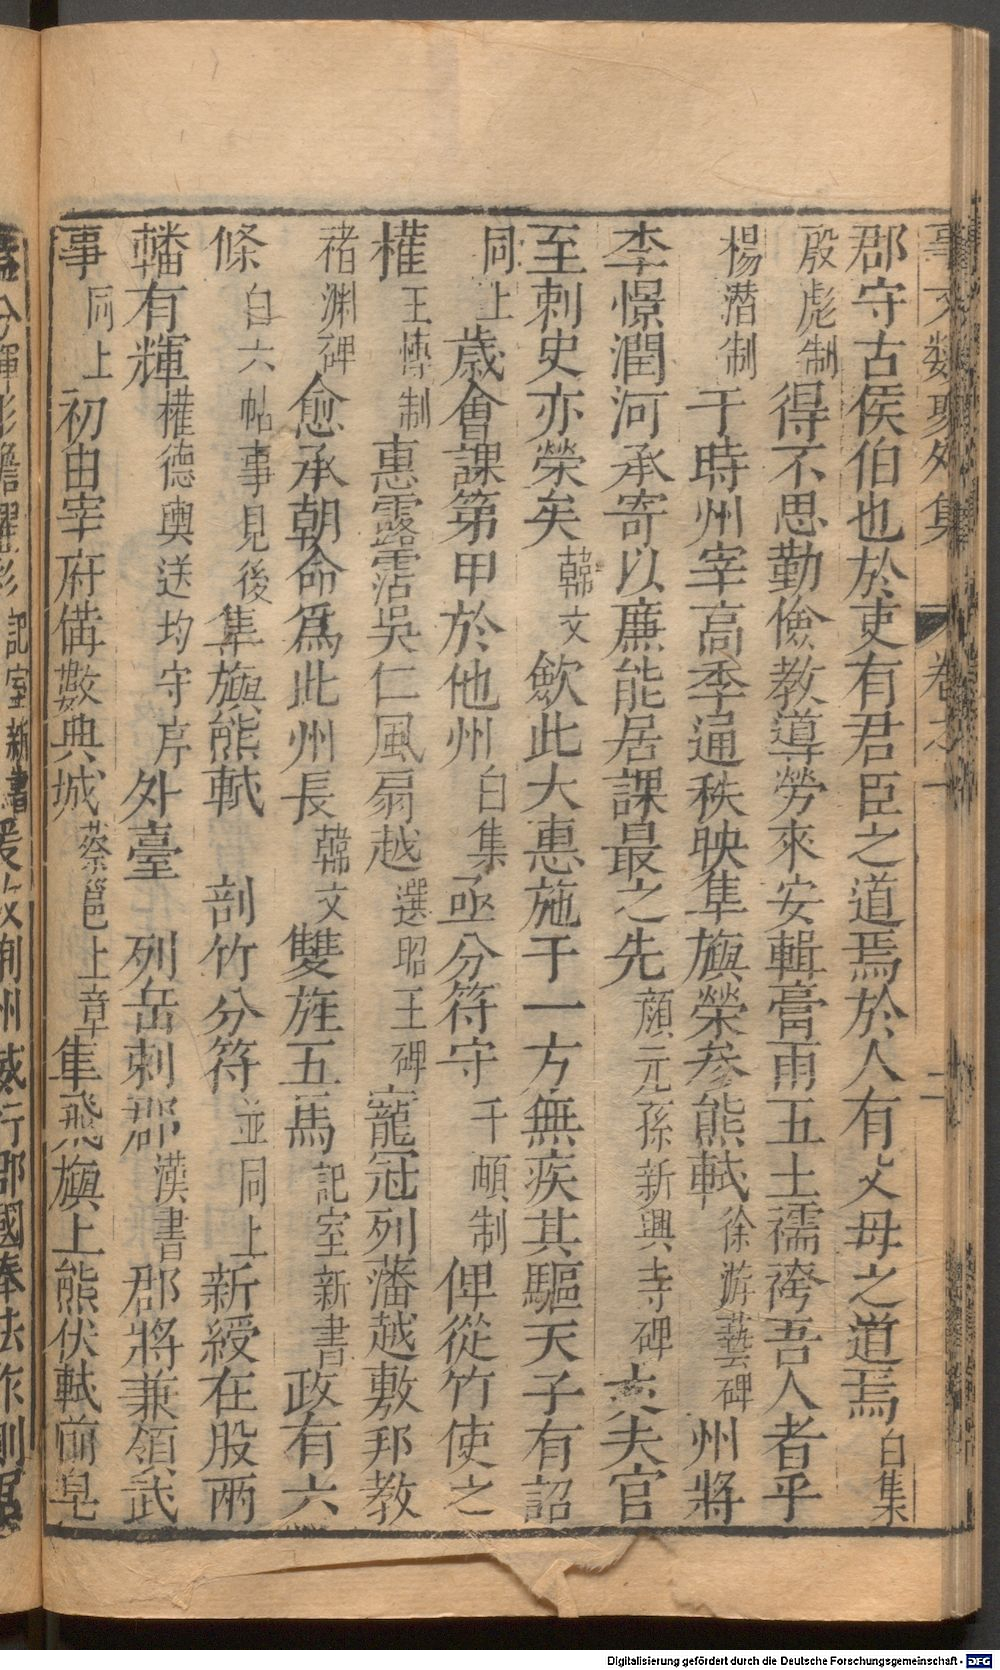 事文類聚外集 卷之一 二
郡守古侯伯也於吏有君臣之道焉於人有父母之道焉白集
殷彪制得不思勤儉教導勞來安輯膏雨五土襦袴吾人者乎
楊潛制于時州宰高季通秩映隼旟榮參熊軾徐游藝碑州將
李憬潤河承寄以廉能居課最之先顏元孫新興寺碑夫官
至刺史亦榮矣韓文歛此大惠施于一方無疾其驅天子有詔
同上歲會課第甲於他州白集亟分符守于頔制俾從竹使之
權王慱制惠露霑吳仁風扇越選昭王碑寵冠列藩越敷邦教
褚渊碑愈承朝命爲此州長韓文雙旌五馬記室新書政有六
條白六帖事見後隼旟熊軾 剖竹分符並同上新綬在股兩
轓有輝權德輿送均守序外臺 列岳刺郡漢書郡將兼領武
事同上初由宰府備數典城蔡邕上章隼飛旟上熊伏軾前皂
記室新書 荊州威行郡國奉法作則
Digitalisierung gefördert durch die Deutsche Forschungsgemeinschaft - DFG